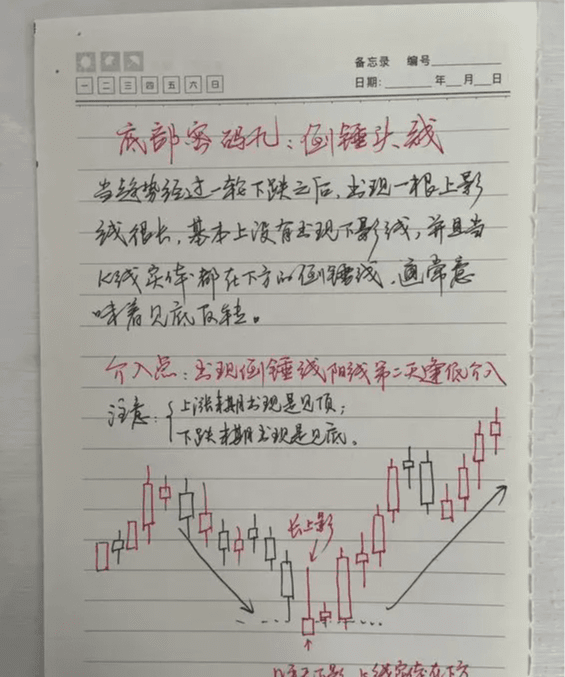 备忘录 编号
一 二 三 四 五 六 日
日期: 年 月 日
底部密码九：倒锤头线
当趋势经过一轮下跌之后，出现一根上影
线很长，基本上没有出现下影线，并且当
K线实体都在下方的倒锤线，通常意
味着见底反转。
介入点：出现倒锤线阳线第二天逢低介入
注意：上涨末期出现是见顶；
下跌末期出现是见底。
长上影